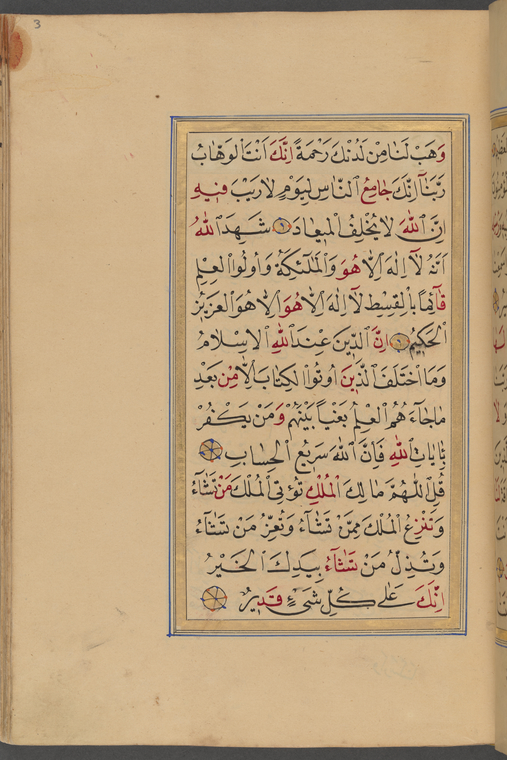 3
وَهَبْ لَنَا مِنْ لَدُنْكَ رَحْمَةً اِنَّكَ اَنْتَ الْوَهَّابُ
رَبَّنَآ اِنَّكَ جَامِعُ النَّاسِ لِيَوْمٍ لَا رَيْبَ فِيهِ
اِنَّ اللّٰهَ لَا يُخْلِفُ الْمِيعَادَ شَهِدَ اللّٰهُ
اَنَّهُ لَآ اِلٰهَ اِلَّا هُوَ وَالْمَلٰٓئِكَةُ وَاُولُوا الْعِلْمِ
قَآئِمًا بِالْقِسْطِ لَآ اِلٰهَ اِلَّا هُوَ اِلَّا هُوَ الْعَزِيزُ
الْحَكِيمُ اِنَّ الدِّينَ عِنْدَ اللّٰهِ الْاِسْلَامُ
وَمَا اخْتَلَفَ الَّذِينَ اُوتُوا الْكِتَابَ اِلَّا مِنْ بَعْدِ
مَا جَآءَهُمُ الْعِلْمُ بَغْيًا بَيْنَهُمْ وَمَنْ يَكْفُرْ
بِاٰيَاتِ اللّٰهِ فَاِنَّ اللّٰهَ سَرِيعُ الْحِسَابِ
قُلِ اللّٰهُمَّ مَالِكَ الْمُلْكِ تُؤْتِي الْمُلْكَ مَنْ تَشَآءُ
وَتَنْزِعُ الْمُلْكَ مِمَّنْ تَشَآءُ وَتُعِزُّ مَنْ تَشَآءُ
وَتُذِلُّ مَنْ تَشَآءُ بِيَدِكَ الْخَيْرُ
اِنَّكَ عَلٰى كُلِّ شَيْءٍ قَدِيرٌ